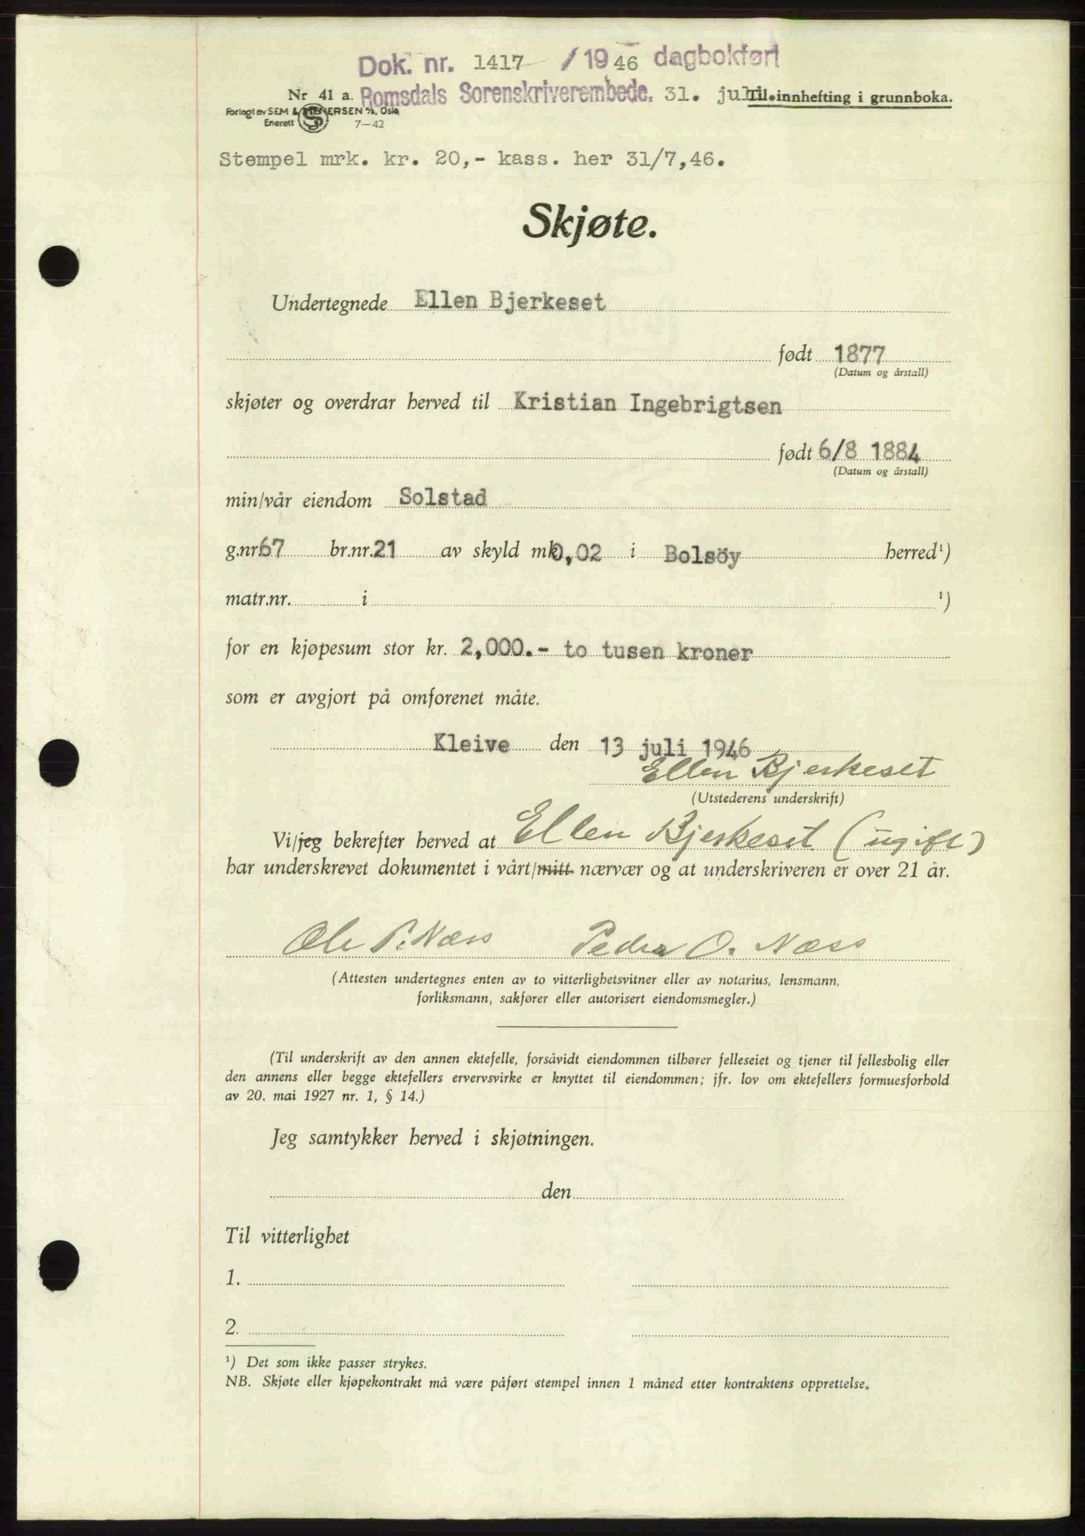 Dok. nr. 1417 / 1946 dagbokført
Nr 41 a. Romsdals Sorenskriverembede. 31. juli. Til innhefting i grunnboka.
Forlagt av SEM & STENERSEN A/S, Oslo
Enerett S 7—42
Stempel mrk. kr. 20,- kass. her 31/7,46.
Skjøte.
Undertegnede Ellen Bjerkeset
født 1877
(Datum og årstall)
skjøter og overdrar herved til Kristian Ingebrigtsen
født 6/8 1884
(Datum og årstall)
min/vår eiendom Solstad
g.nr. 67 br.nr. 21 av skyld mk. 0,02 i Bolsöy herred¹)
matr.nr. i ¹)
for en kjøpesum stor kr. 2,000.- to tusen kroner
som er avgjort på omforenet måte.
Kleive den 13 juli 1946
Ellen Bjerkeset
(Utstederens underskrift)
Vi/jeg bekrefter herved at Ellen Bjerkeset (ugift)
har underskrevet dokumentet i vårt/mitt nærvær og at underskriveren er over 21 år.
Ole P. Næss Pedra O. Næss
(Attesten undertegnes enten av to vitterlighetsvitner eller av notarius, lensmann,
forliksmann, sakfører eller autorisert eiendomsmegler.)
(Til underskrift av den annen ektefelle, forsåvidt eiendommen tilhører felleseiet og tjener til fellesbolig eller
den annens eller begge ektefellers ervervsvirke er knyttet til eiendommen; jfr. lov om ektefellers formuesforhold
av 20. mai 1927 nr. 1, § 14.)
Jeg samtykker herved i skjøtningen.
den
Til vitterlighet
1.
2.
¹) Det som ikke passer strykes.
NB. Skjøte eller kjøpekontrakt må være påført stempel innen 1 måned etter kontraktens opprettelse.